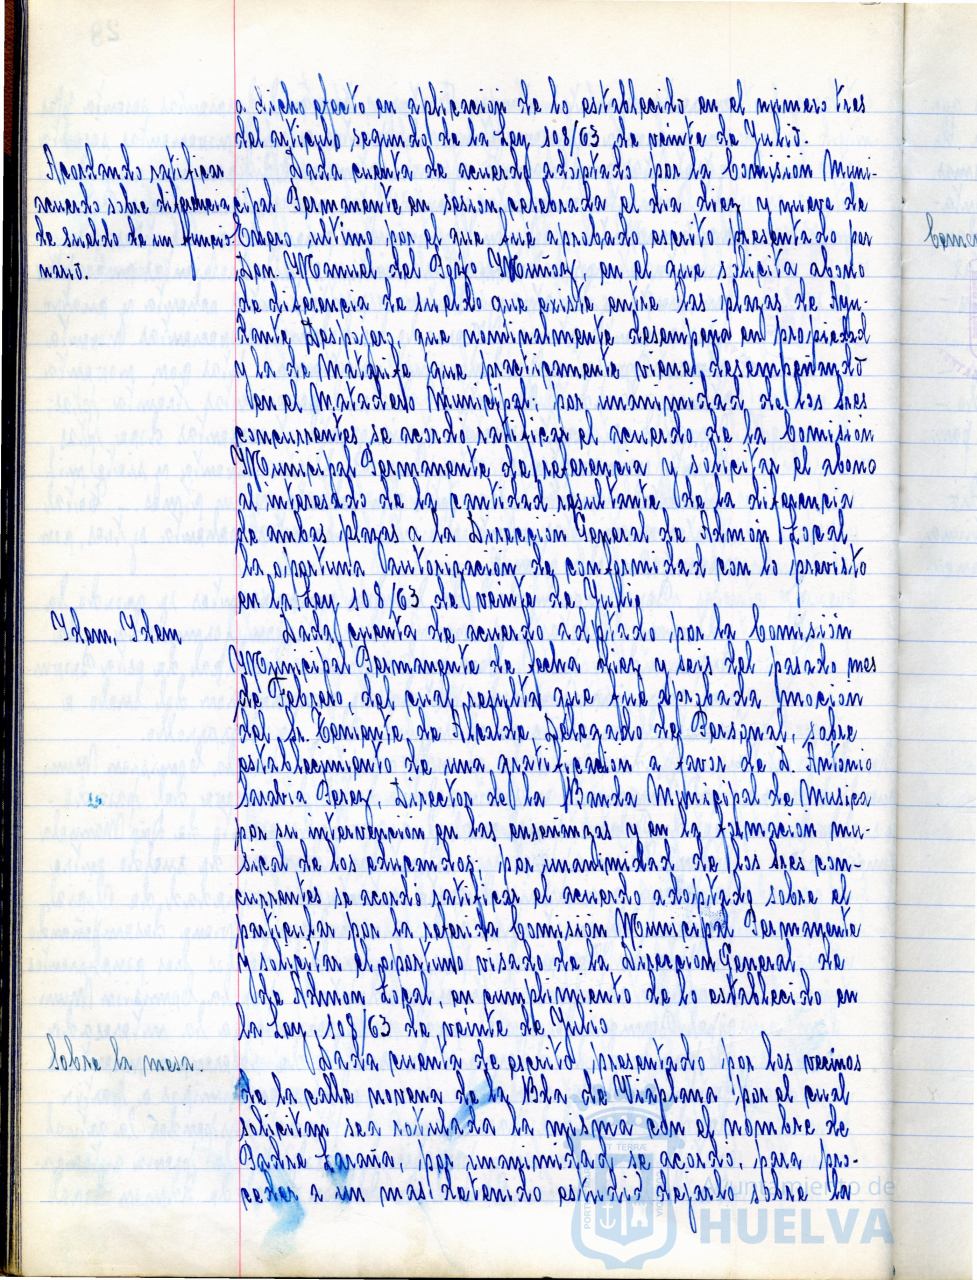 a dicho efecto en aplicación de lo establecido en el numero tres
del articulo segundo de la Ley 108/63 de veinte de Julio.
Acordando ratificar
acuerdo sobre diferencia
de sueldo de un funcio-
nario.
Dada cuenta de acuerdo adoptado por la Comisión Muni-
cipal Permanente en sesion celebrada el dia diez y nueve de
Enero ultimo por el que fué aprobado escrito presentado por
Don Manuel del Pozo Muñoz en el que solicita abono
de diferencia de sueldo que existe entre las plazas de Ayu-
dante Despojero, que nominalmente desempeña en propiedad
y la de Matarife que practicamente viene desempeñando
en el Matadero Municipal; por unanimidad de los tres
concurrentes se acordó ratificar el acuerdo de la Comisión
Municipal Permanente de referencia y solicitar el abono
al interesado de la cantidad resultante de la diferencia
de ambas plazas a la Dirección General de Admon Local
la oportuna autorización de conformidad con lo previsto
en la Ley 108/63 de veinte de Julio.
Idem. Idem
Dada cuenta de acuerdo adoptado por la Comisión
Municipal Permanente de fecha diez y seis del pasado mes
de Febrero, del cual resulta que fué aprobada moción
del Sr. Teniente de Alcalde Delegado de Personal, sobre
establecimiento de una gratificación a favor de D. Antonio
Sarabia Perez, Director de la Banda Municipal de Musica
por su intervención en las enseñanzas y en la formación mu-
sical de los educandos, por unanimidad de los tres con-
currentes se acordó ratificar el acuerdo adoptado sobre el
particular por la referida Comisión Municipal Permanente
y solicitar el oportuno visado de la Dirección General de
de Admon Local, en cumplimiento de lo establecido en
la Ley 108/63 de veinte de Julio.
Sobre la mesa.
Dada cuenta de escrito presentado por los vecinos
de la calle novena de la Bda de Viaplana por el cual
solicitan sea rotulada la misma con el nombre de
Padre Laraña, por unanimidad se acordó, para pro-
ceder a un mas detenido estudio dejarlo sobre la
Ayuntamiento de
HUELVA